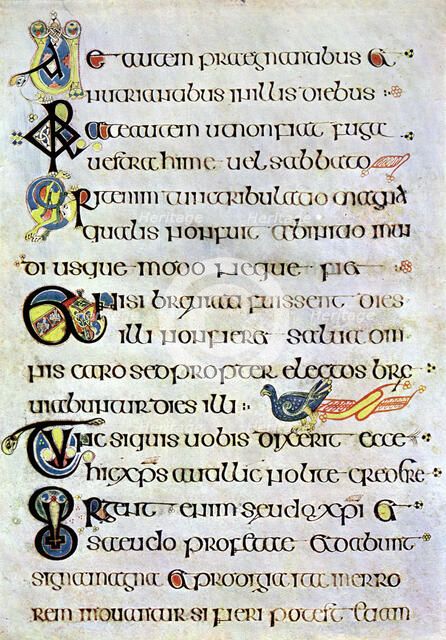 Uae autem praegnantibus et
nutrientibus in illis diebus
Orate autem ut non fiat fuga
uestra hieme uel sabbato
Erit enim tunc tribulatio magna
qualis non fuit ab initio mun
di usque modo neque fiet
Et nisi breuiati fuissent dies
illi non fieret salua om
nis caro sed propter electos bre
uiabuntur dies illi :
Tunc si quis uobis dixerit ecce
hic xps aut illic nolite credere
Surgent enim seudo xpi et
seudo profetae et dabunt
signa magna et prodigia ita ut in erro
rem moueantur si fieri potest etiam
Heritage
Heritage
Heritage
Heritage